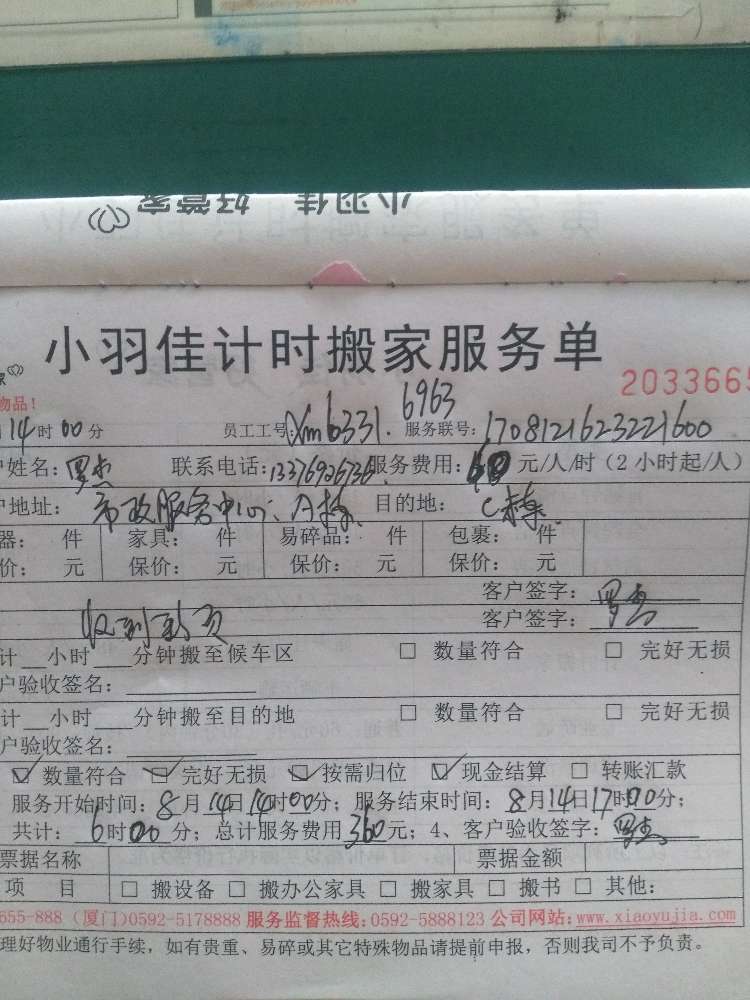 小羽佳 好管家
小羽佳计时搬家服务单
家
2033665
物品!
月14时00分 员工工号:Xm6331.6963 服务联号:1708121623221600
户姓名:罗杰 联系电话:13376926736 服务费用: 元/人/时(2小时起/人)
户地址:市政服务中心、A栋 目的地:C栋
器: 件 家具: 件 易碎品: 件 包裹: 件
价: 元 保价: 元 保价: 元 保价: 元
客户签字:罗杰
收到 客户签字:罗杰
计__小时___分钟搬至候车区 □ 数量符合 □ 完好无损
户验收签名:
计__小时___分钟搬至目的地 □ 数量符合 □ 完好无损
户验收签名:
☑ 数量符合 ☑ 完好无损 ☑ 按需归位 ☑ 现金结算 □ 转账汇款
服务开始时间:8月14日14时00分;服务结束时间:8月14日17时00分;
共计:6时00分;总计服务费用360元;4、客户验收签字:罗杰
票据名称 票据金额
项 目 □ 搬设备 □ 搬办公家具 □ 搬家具 □ 搬书 □ 其他:
655-888(厦门)0592-5178888 服务监督热线:0592-5888123 公司网站:www.xiaoyujia.com
理好物业通行手续,如有贵重、易碎或其它特殊物品请提前申报,否则我司不予负责。